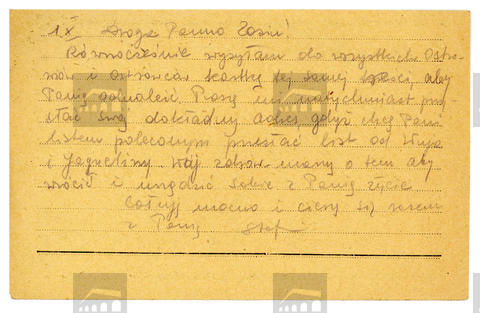 1 X Droga Panno Zosiu!
Równocześnie wysyłam do wszystkich Ostro-
wów i Ostrowców kartkę tej samej treści, aby
Panią odnaleźć. Proszę mi natychmiast prze-
słać swój dokładny adres, gdyż chcę Pani
listem poleconym przesłać list od
i Jagueliny. zdrów, marzy o tem aby
wrócić i urządzić sobie z Panią życie
Całuję mocno i cieszę się razem
z Panią Stef